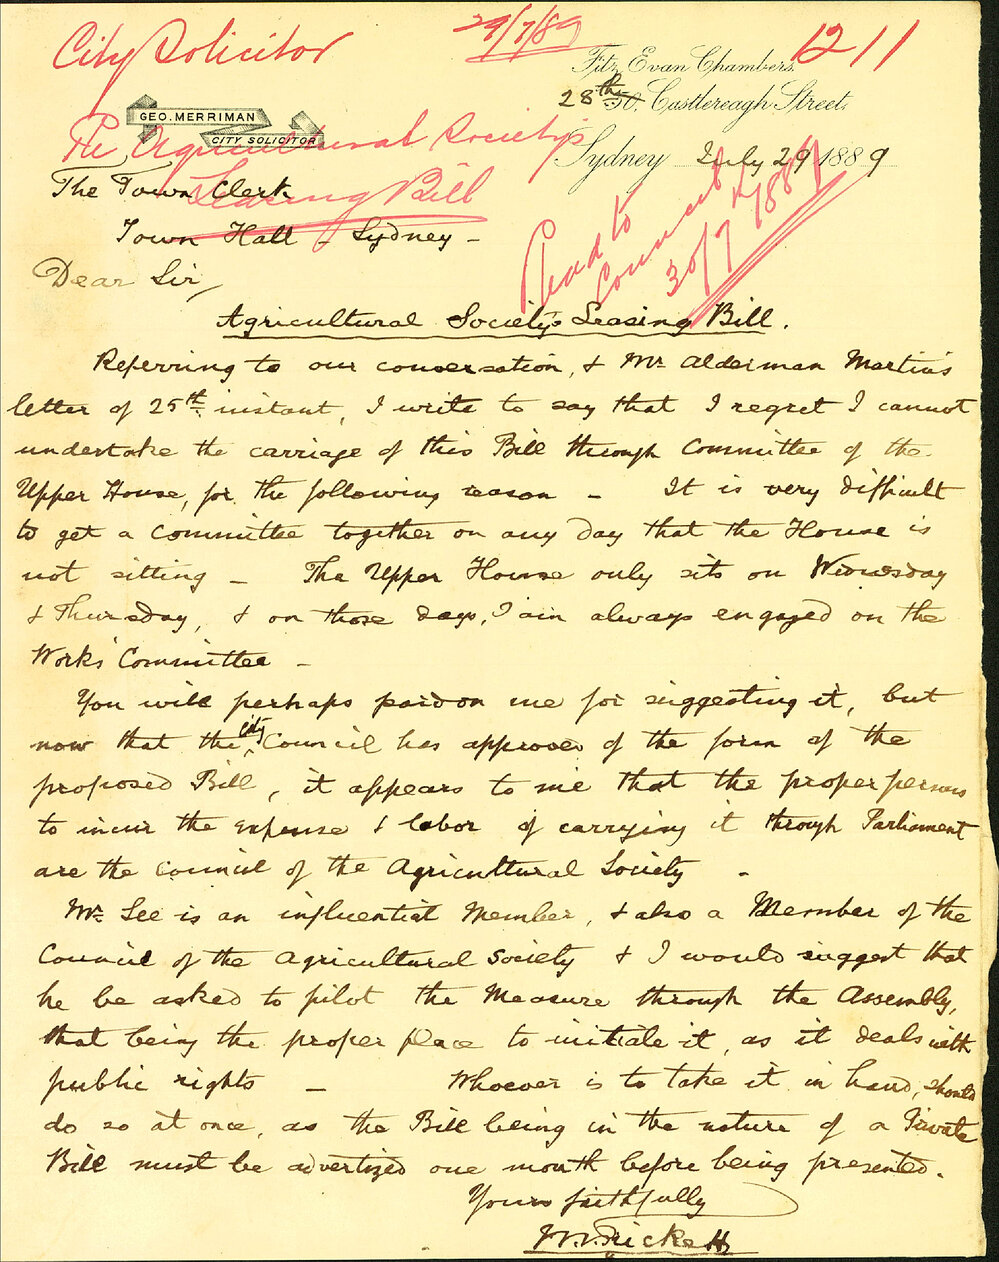 City Solicitor
29/7/89
1211
Fitz Evan Chambers.
28th Castlereagh Street,
GEO. MERRIMAN
CITY SOLICITOR
The Agricultural Society's
Leasing Bill
Sydney July 29 1889
Read to
Council
30/7/1889
The Town Clerk
Town Hall Sydney -
Dear Sir,
Agricultural Society's Leasing Bill.
Referring to our conversation, & Mr Alderman Martin's
letter of 25th instant, I write to say that I regret I cannot
undertake the carriage of this Bill through Committee of the
Upper House, for the following reason - It is very difficult
to get a Committee together on any day that the House is
not sitting - The Upper House only sits on Wednesday
& Thursday, & on those days, I am always engaged on the
Works' Committee -
You will perhaps pardon me for suggesting it, but
now that the City Council has approved of the form of the
proposed Bill, it appears to me that the proper persons
to incur the expense & labor of carrying it through Parliament
are the Council of the Agricultural Society -
Mr See is an influential Member, & also a Member of the
Council of the Agricultural Society & I would suggest that
he be asked to pilot the Measure through the Assembly,
that being the proper place to initiate it, as it deals with
public rights - Whoever is to take it in hand, should
do so at once, as the Bill being in the nature of a Private
Bill must be advertized one month before being presented.
Yours faithfully